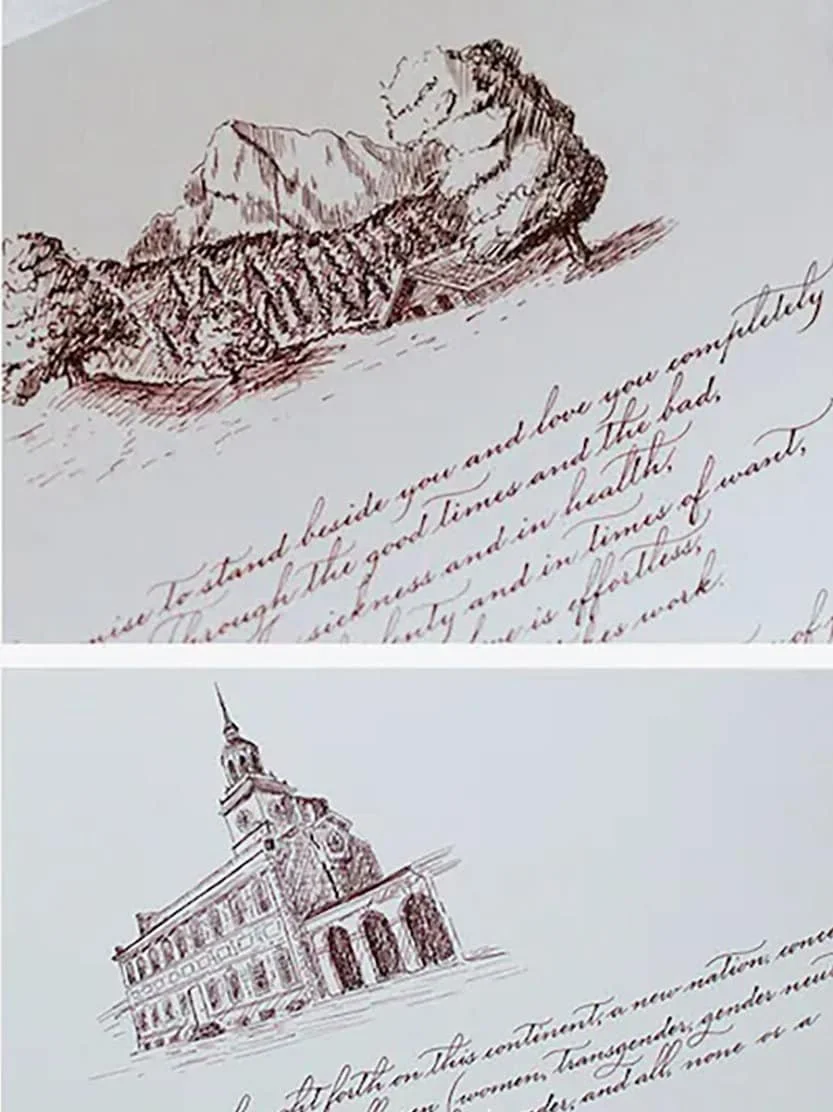 mise to stand beside you and love you completely
Through the good times and the bad,
sickness and in health,
plenty and in times of want,
love is effortless,
work.
of
forth on this continent, a new nation, conce
men (women, transgender, gender neut
der, and all, none or a